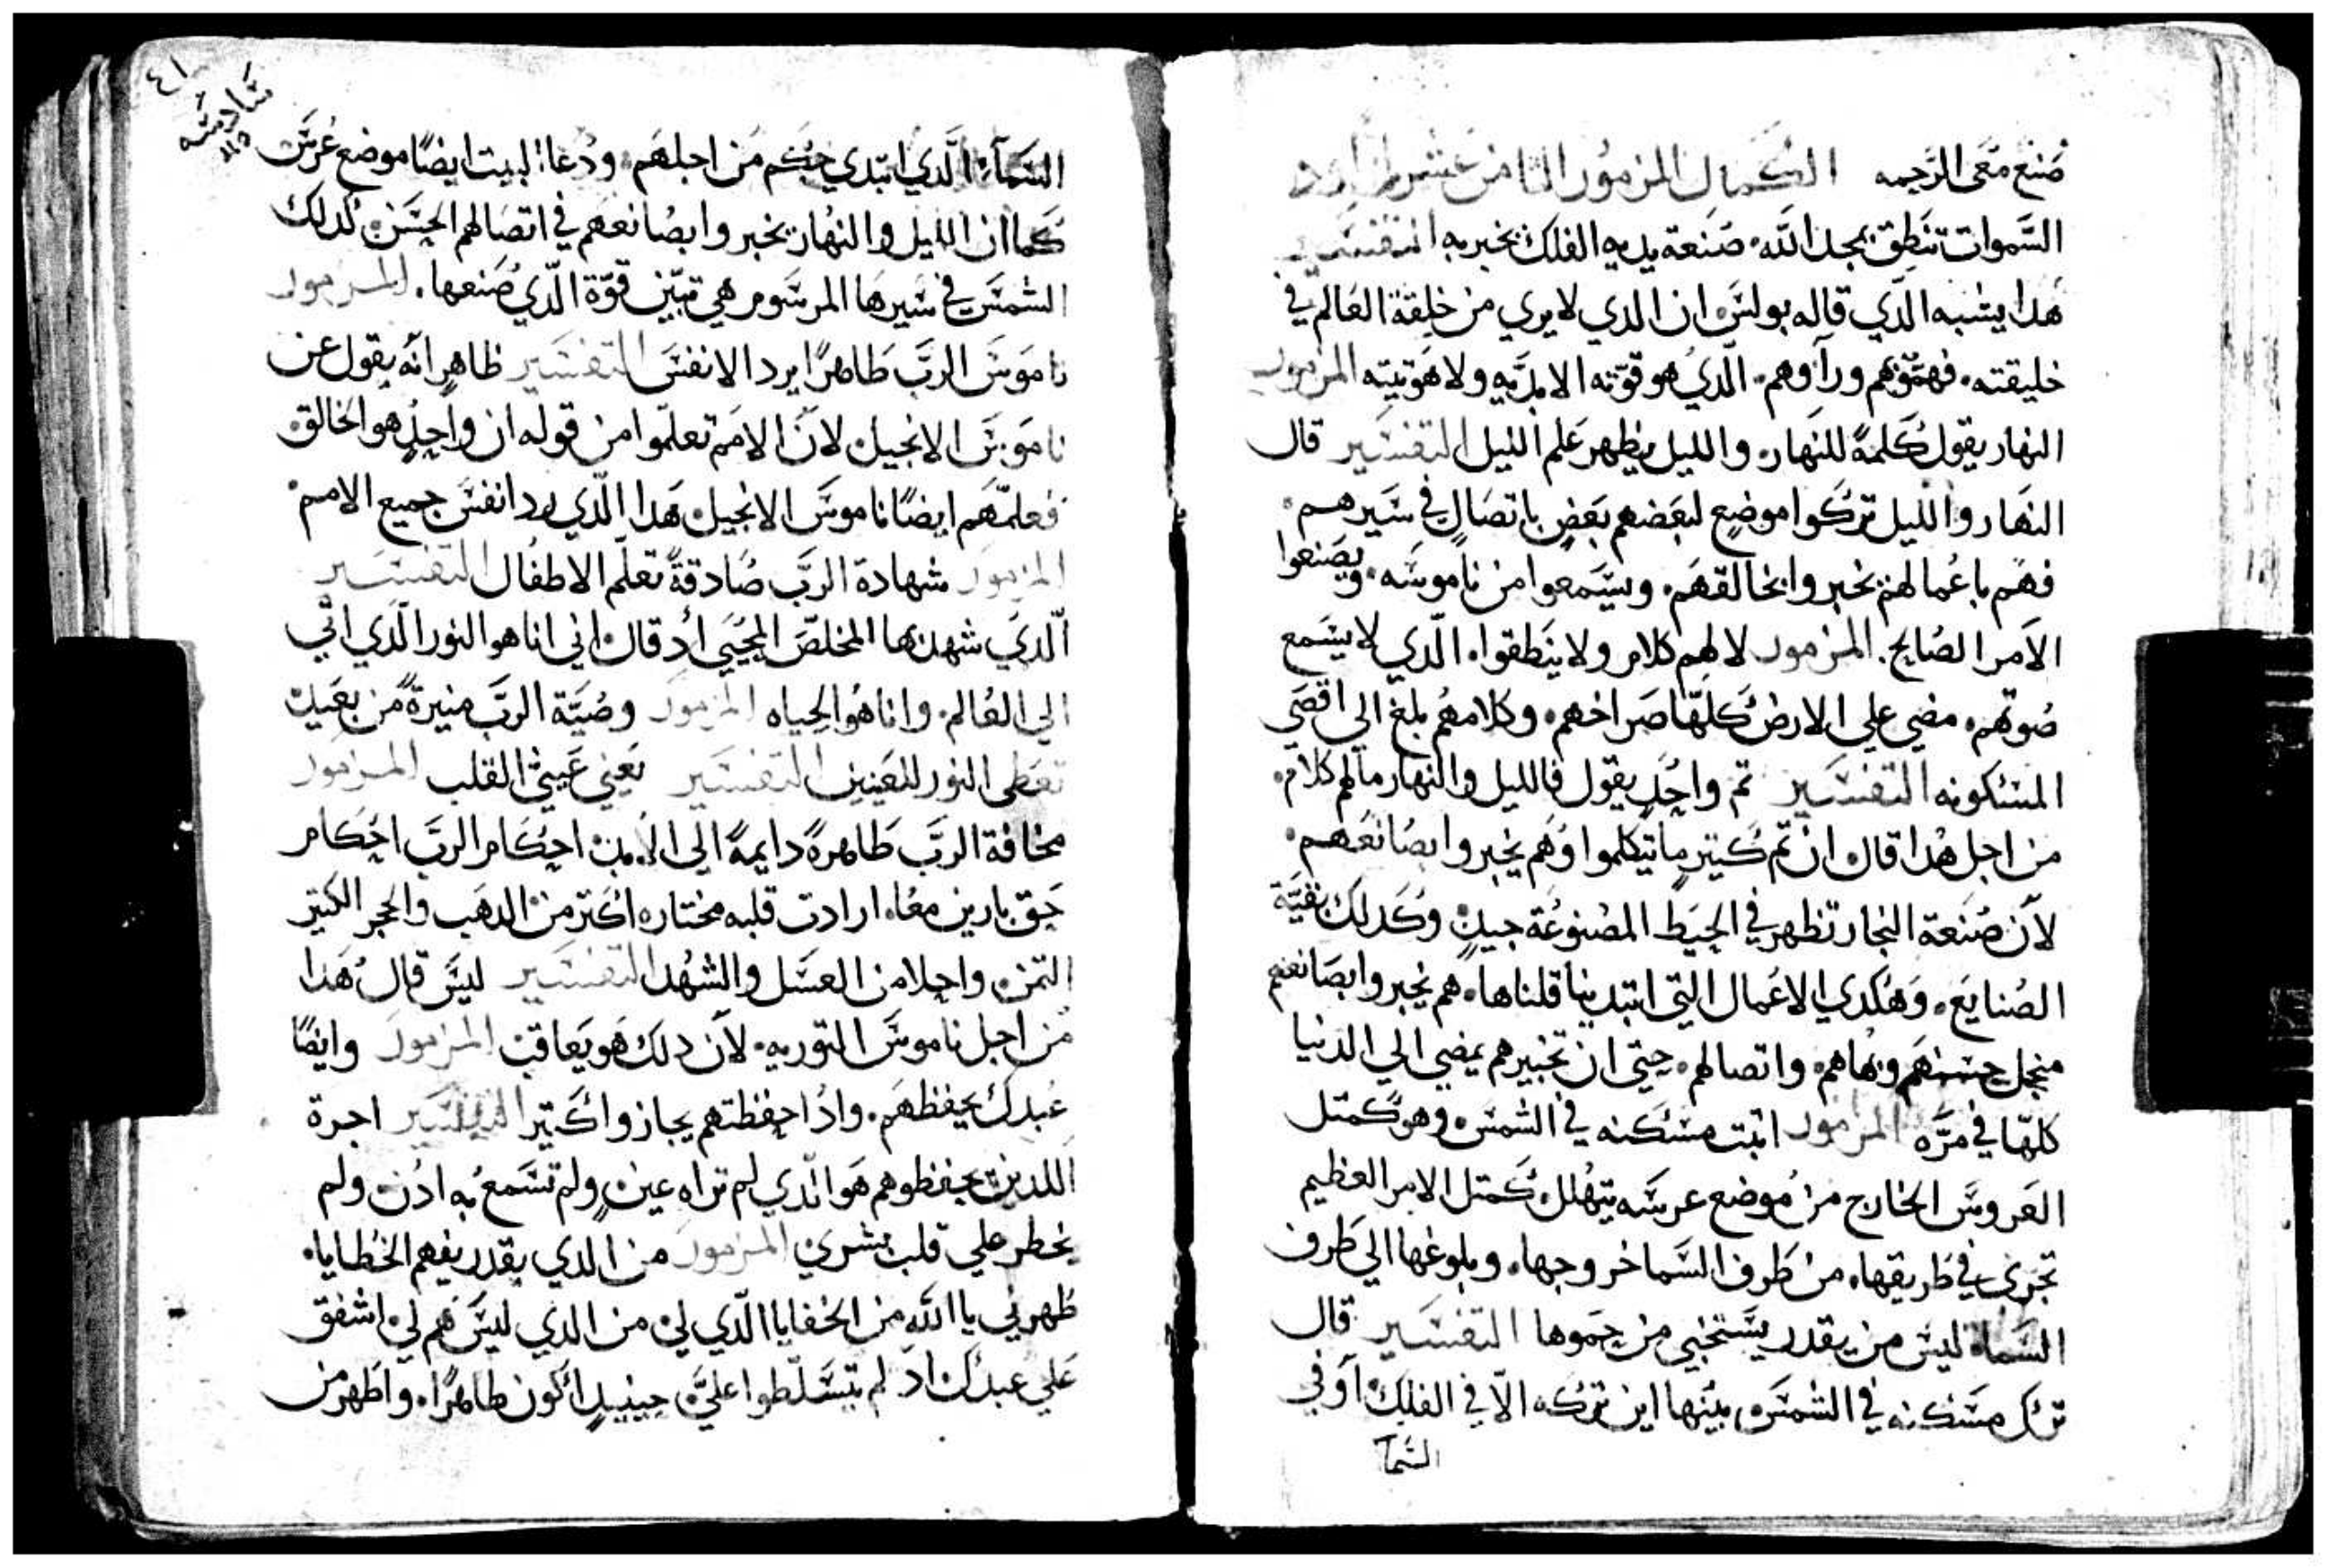 صنع معي الرحمه الكمال المزمور الثامن عشر
السموات تنطق بمجد الله صنعة يديه الفلك يخبر به التفسير
هدا يشبه الدي قاله بولس ان الدي لا يري من خلقة العالم في
خليقته فهمتهم وراوهم الدي هو قوته الابديه ولاهوتيته المزمور
النهار يقول كلمة للنهار والليل يظهر علم الليل التفسير قال
النهار والليل تركوا موضع لبعضهم بعض باتصال في سيرهم
فهم باعمالهم يخبروا بخالقهم ويستمعوا من ناموسه ويصنعوا
الامر الصالح المزمور لا لهم كلام ولا ينطقوا الدي لا يسمع
صوتهم مضي علي الارض كلها صراخهم وكلامهم بلغ الي اقصي
المسكونه التفسير تم واحد يقول فالليل والنهار ما لهم كلام
من اجل هدا قال ان تم كتير ما تيكلموا وهم يخبروا بصانعهم
لان صنعة النجار تظهر في الحيط المصنوعة جيد وكدلك بقية
الصنايع وهكدي الاعمال التي ابتدينا قلناها هم يخبروا بصانعهم
منجل حسنهم وبهاهم واتصالهم حتي ان تخبيرهم يمضي الي الدنيا
كلها في مره المزمور اتبت مسكنه في الشمس وهو كمتل
العروس الخارج من موضع عرسه يتهلل كمتل الامر العظيم
تجري في طريقها من طرف السما خروجها وبلوغها الي طرف
السما ليس من يقدر يستخبي من حموها التفسير قال
ترك مسكنه في الشمس بينها اين تركه الا في الفلك او في
السما
٤١
سادسه
السما الدي ابتدي حبكم من اجلهم ودعا البيت ايضا موضع عرس
كما ان الليل والنهار يخبروا بصانعهم في اتصالهم الحسن كدلك
الشمس في سيرها المرسوم هي تبين قوة الدي صنعها المزمور
ناموس الرب طاهرا يرد الانفس التفسير ظاهر انه يقول عن
ناموس الانجيل لان الامم تعلموا من قوله ان واحد هو الخالق
فعلمهم ايضا ناموس الانجيل هدا الدي رد انفس جميع الامم
المزمور شهادة الرب صادقة تعلم الاطفال التفسير
الدي شهدها المخلص المحيي اد قال اني انا هو النور الدي اتي
الي العالم وانا هو الحياه المزمور وصية الرب منيرة من بعيد
تعطي النور للعينين التفسير يعني عيني القلب المزمور
مخافة الرب طاهرة دايمة الي الابد احكام الرب احكام
حق بارين معا ارادت قلبه مختاره اكتر من الدهب والحجر الكتير
التمن واحلا من العسل والشهد التفسير ليس قال هدا
من اجل ناموس التوريه لان دلك هو يعاقب المزمور وايضا
عبدك يحفظهم وادا حفظتهم يجازوا كتير التفسير اجرة
اللدين يحفظوهم هو الدي لم تراه عين ولم تسمع به ادن ولم
يخطر علي قلب بشري المزمور من الدي يقدر يفهم الخطايا
طهرني يا الله من الخفايا الدي لي من الدي ليس هم لي اشفق
علي عبدك اد لم يتسلطوا علي حينيد اكون طاهرا واطهر من